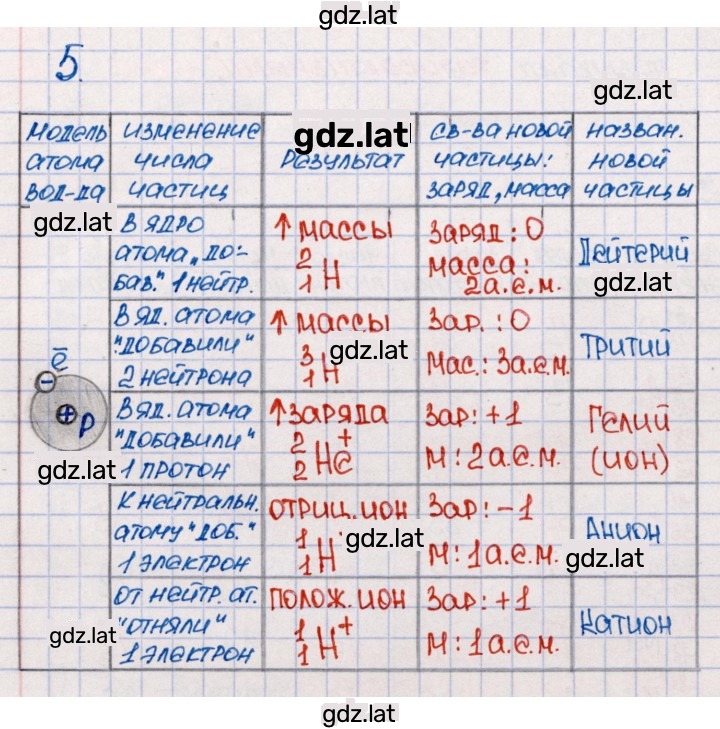 gdz.lat
5.
gdz.lat
gdz.lat
модель атома вод-да
изменение числа частиц
Результат
св-ва новой частицы: заряд, масса
назван. новой частицы
gdz.lat
В ядро атома „до-бав." 1 нейтр.
↑ массы
2
1 H
Заряд: 0
масса: 2 а.е.м.
Дейтерий
gdz.lat
В яд. атома "добавили" 2 нейтрона
↑ массы
3
1 H
gdz.lat
Зар.: 0
Мас.: 3а.е.м.
Тритий
ē
−
+ p
gdz.lat
В яд. атома "добавили" 1 протон
↑ заряда
2
2 He +
Зар: +1
м: 2 а.е.м.
Гелий (ион)
К нейтральн. атому "доб." 1 электрон
отриц. ион
1
1 H -
gdz.lat
Зар: -1
м: 1 а.е.м.
Анион
gdz.lat
от нейтр. ат. "отняли" 1 электрон
gdz.lat
полож. ион
1
1 H +
Зар: +1
м: 1 а.е.м.
Катион
gdz.lat